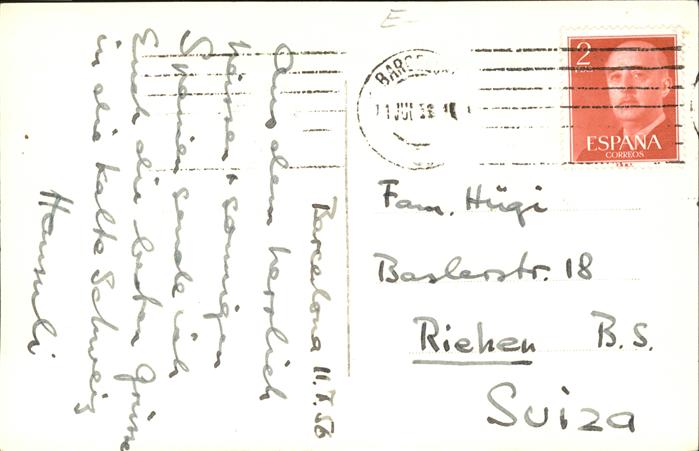 Barcelona 11.7.56
Aus dem herrlich
heissen + sonnigen
Spanien sende ich
Euch die besten Grüsse
in die kalte Schweiz
Hansruedi
E
BARCELONA
11 JUL 56
2
ESPAÑA
CORREOS
Fam. Hügi
Baslerstr. 18
Riehen B.S.
Suiza